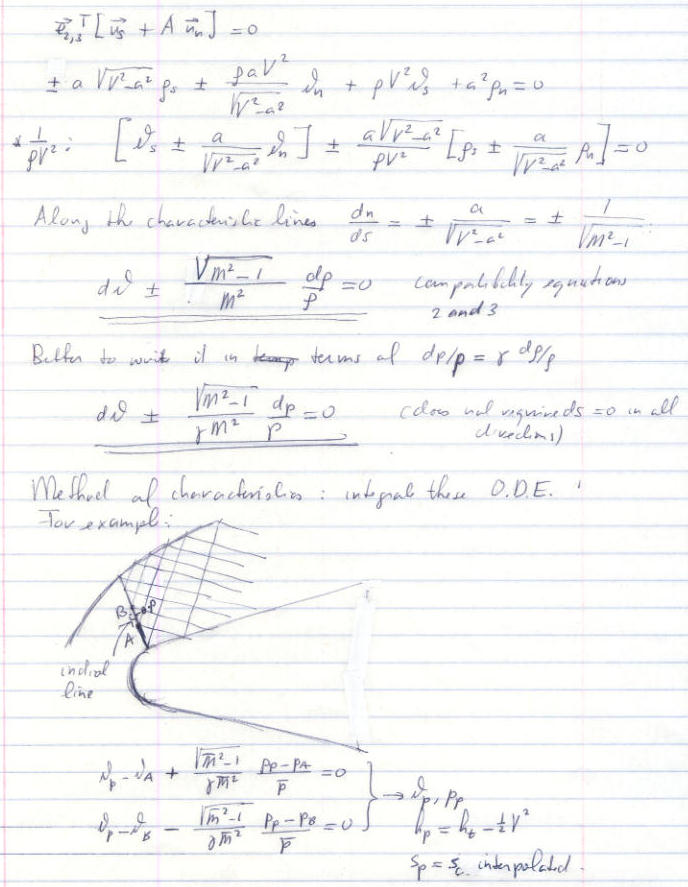 e⃗₂,₃ᵀ [u⃗s + A u⃗n] = 0
± a √(V²-a²) ρs ± ρaV²/√(V²-a²) ϑn + ρV²ϑs + a²ρn = 0
* 1/ρV² : [ϑs ± a/√(V²-a²) ϑn] ± a√(V²-a²)/ρV² [ρs ± a/√(V²-a²) ρn] = 0
Along the characteristic lines dn/ds = ± a/√(V²-a²) = ± 1/√(M²-1)
dϑ ± √(M²-1)/M² dρ/ρ = 0 compatibility equations
2 and 3
Better to write it in terms of dp/p = γ dρ/ρ
dϑ ± √(M²-1)/γM² dp/p = 0 (does not require ds = 0 in all
directions)
Method of characteristics : integrate these O.D.E. !
For example :
B C P
A
initial
line
ϑp - ϑA + √(M̄²-1)/γM̄² (pp - pA)/p̄ = 0
ϑp - ϑB - √(M̄²-1)/γM̄² (pp - pB)/p̄ = 0 } → ϑp, pp
hp = ht - ½V²
sp = sc interpolated.